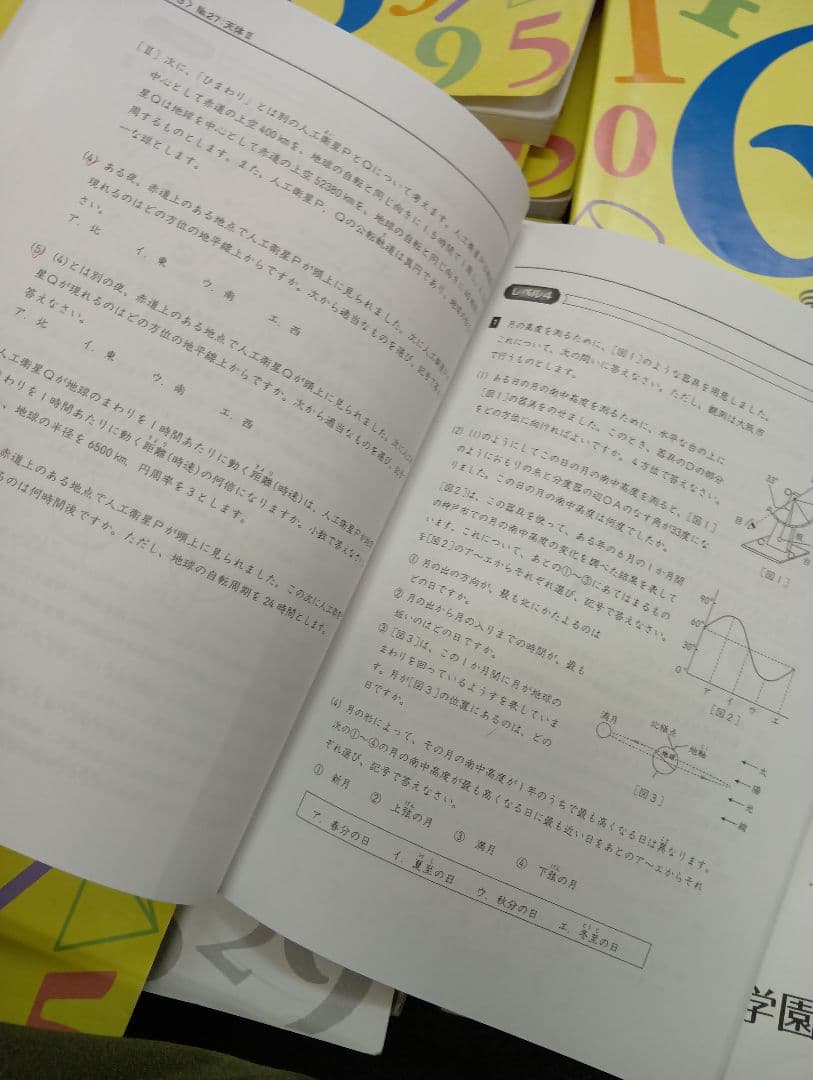 №27 天体Ⅱ
[Ⅱ] 次に、「ひまわり」とは別の人工衛星PとQについて考えます。人工衛星Pは
中心として赤道の上空400kmを、地球の自転と同じ向きに1.5時間で1周し、
星Qは地球を中心として赤道の上空52380kmを、地球の自転と同じ向きに
周するものとします。また、人工衛星P、Qの公転軌道は真円であり、
一な球とします。
(4) ある夜、赤道上のある地点で人工衛星Pが頭上に見られました。次に人工衛星
現れるのはどの方位の地平線上からですか。次から適当なものを選び、記号で答え
さい。
ア．北 イ．東 ウ．南 エ．西
(5) (4)とは別の夜、赤道上のある地点で人工衛星Qが頭上に見られました。次に
星Qが現れるのはどの方位の地平線上からですか。次から適当なものを選び、記号
答えなさい。
ア．北 イ．東 ウ．南 エ．西
人工衛星Qが地球のまわりを1時間あたりに動く距離(時速)は、人工衛星Pが
まわりを1時間あたりに動く距離(時速)の何倍になりますか。小数で答えなさい
、地球の半径を6500km、円周率を3とします。
赤道上のある地点で人工衛星Pが頭上に見られました。この次に人工衛星
るのは何時間後ですか。ただし、地球の自転周期を24時間とします。
レベル4
1 月の高度を測るために、[図1]のような器具を用意しました。
これについて、次の問いに答えなさい。ただし、観測は大阪市
で行うものとします。
(1) ある日の月の南中高度を測るために、水平な台の上に
[図1]の器具をのせました。このとき、器具のDの部分
をどの方位に向ければよいですか。4方位で答えなさい。
(2) (1)のようにしてこの日の月の南中高度を測ると、[図1]
のようにおもりの糸と分度器の辺OAのなす角が33度にな
りました。この日の月の南中高度は何度でしたか。
[図2]は、この器具を使って、ある年の6月の1か月間
の神戸市での月の南中高度の変化を調べた結果を表して
います。これについて、あとの①~③にあてはまるもの
を[図2]のア~エからそれぞれ選び、記号で答えなさい。
① 月の出の方向が、最も北にかたよるのは
どの日ですか。
② 月の出から月の入りまでの時間が、最も
短いのはどの日ですか。
③ [図3]は、この1か月間に月が地球の
まわりを回っているようすを表していま
す。月が[図3]の位置にあるのは、どの
日ですか。
(4) 月の形によって、その月の南中高度が1年のうちで最も高くなる日は異なります。
次の①~④の月の南中高度が最も高くなる日に最も近い日をあとのア~エからそれ
ぞれ選び、記号で答えなさい。
① 新月 ② 上弦の月 ③ 満月 ④ 下弦の月
ア．春分の日 イ．夏至の日 ウ．秋分の日 エ．冬至の日
33°
O
A
C
板
台
[図1]
90°
60°
30°
0
ア イ ウ エ
[図2]
満月
北極点
地軸
地球
太
陽
光
線
[図3]
学園